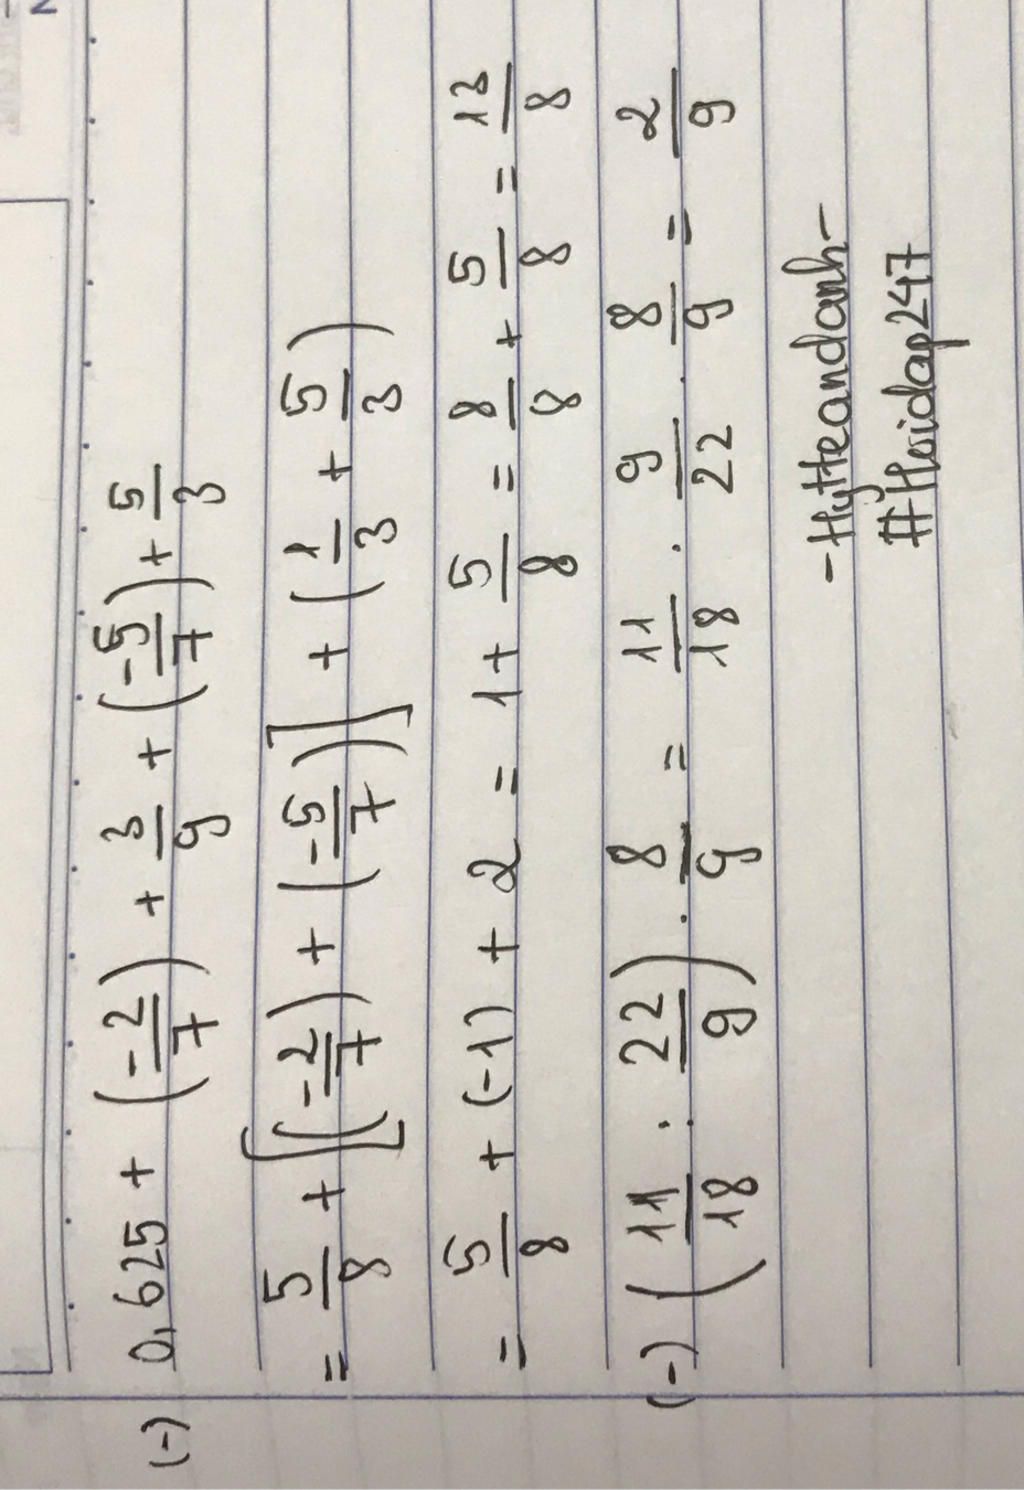 (-) 0,625 + (-2/7) + 3/9 + (-5/7) + 5/3
= 5/8 + [(-2/7) + (-5/7)] + (1/3 + 5/3)
= 5/8 + (-1) + 2 = 1 + 5/8 = 8/8 + 5/8 = 13/8
(-) (11/18 : 22/9) . 8/9 = 11/18 . 9/22 . 8/9 = 2/9
-Hytteandanh-
#Hoidap247